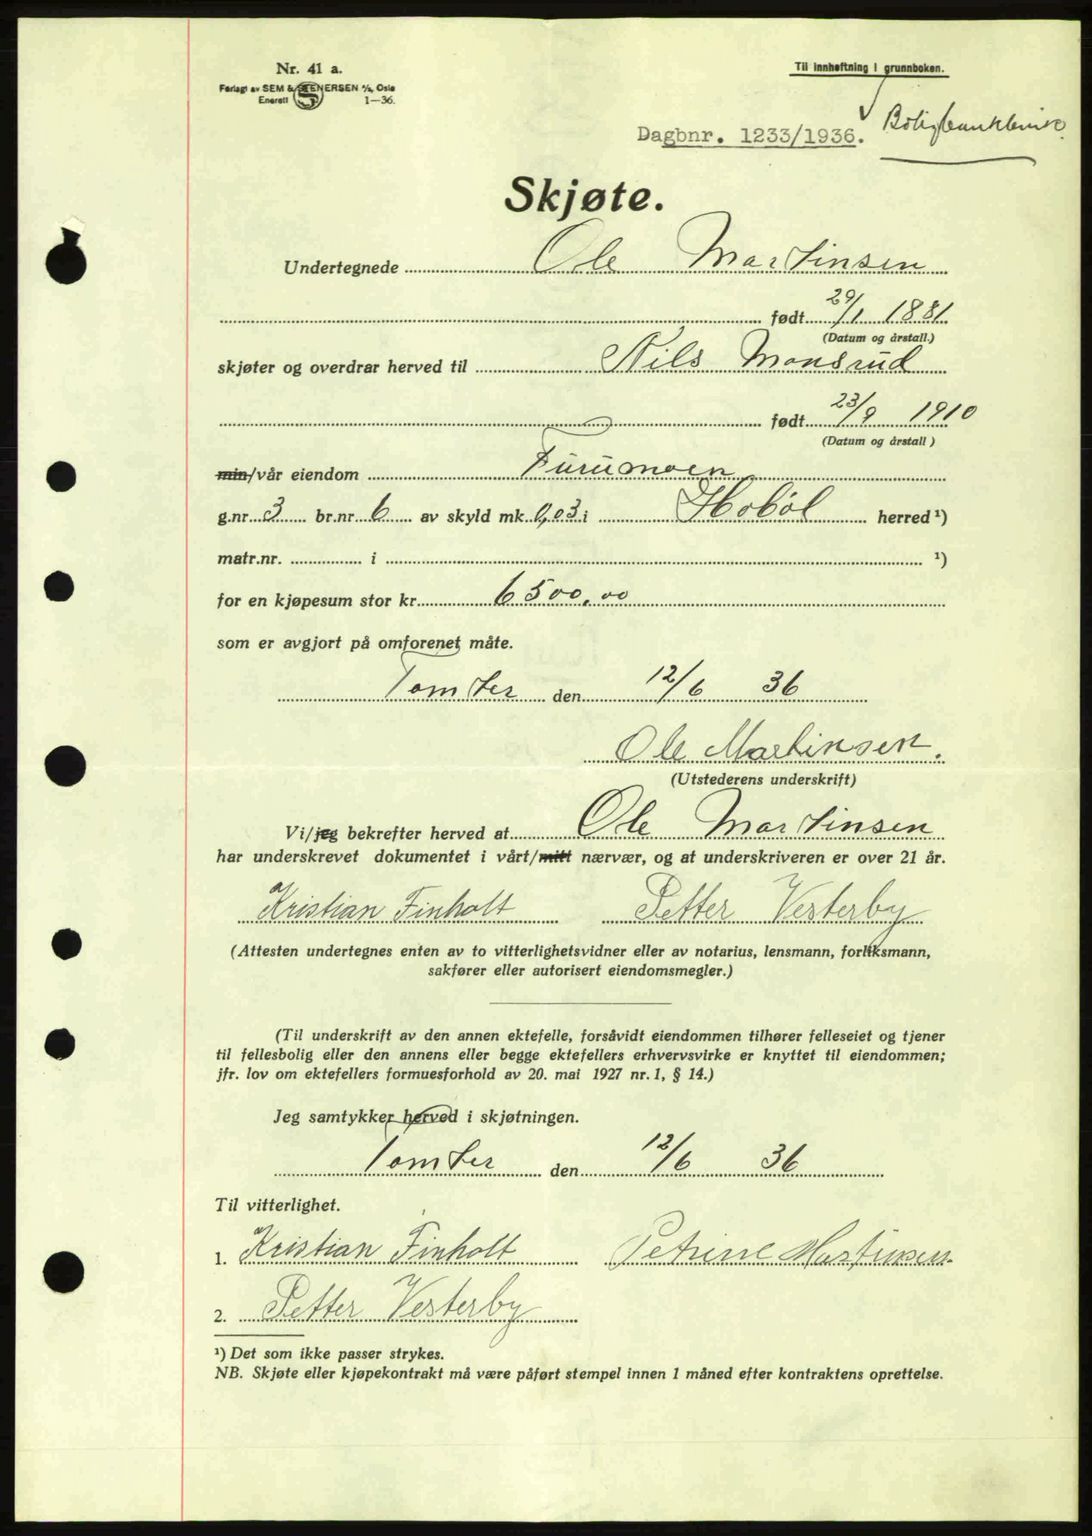 Nr. 41 a.
Forlagt av SEM & STENERSEN A/S, Oslo
Enerett 1—36.
Til innheftning i grunnboken.
Dagbnr. 1233/1936.
Skjøte.
Undertegnede Ole Martinsen
født 29/1 1881
(Datum og årstall.)
skjøter og overdrar herved til Nils Monsrud
født 23/9 1910
(Datum og årstall)
min/vår eiendom Furumoen
g.nr. 3 br.nr. 6 av skyld mk. 0,03 i Hobøl herred ¹)
matr.nr. i ¹)
for en kjøpesum stor kr. 6500,00
som er avgjort på omforenet måte.
Tomter den 12/6 36
Ole Martinsen.
(Utstederens underskrift)
Vi/jeg bekrefter herved at Ole Martinsen
har underskrevet dokumentet i vårt/mitt nærvær, og at underskriveren er over 21 år.
Kristian Finholt Petter Vesterby
(Attesten undertegnes enten av to vitterlighetsvidner eller av notarius, lensmann, forliksmann,
sakfører eller autorisert eiendomsmegler.)
(Til underskrift av den annen ektefelle, forsåvidt eiendommen tilhører felleseiet og tjener
til fellesbolig eller den annens eller begge ektefellers erhvervsvirke er knyttet til eiendommen;
jfr. lov om ektefellers formuesforhold av 20. mai 1927 nr. 1, § 14.)
Jeg samtykker herved i skjøtningen.
Tomter den 12/6 36
Til vitterlighet.
1. Kristian Finholt Petrine Martinsen
2. Petter Vesterby
¹) Det som ikke passer strykes.
NB. Skjøte eller kjøpekontrakt må være påført stempel innen 1 måned efter kontraktens oprettelse.